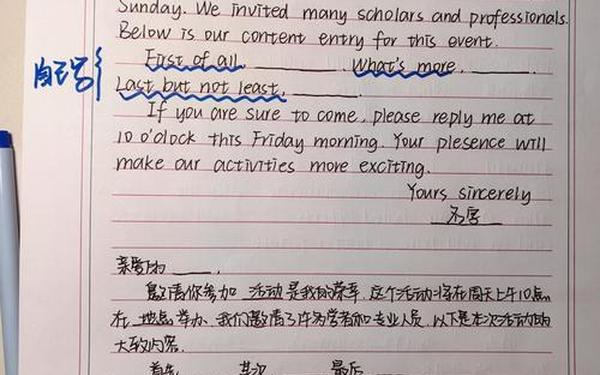 Sunday. We invited many scholars and professionals.
Below is our content entry for this event.
First of all, ______. What's more, ______.
自己写
Last but not least, ______.
If you are sure to come, please reply me at
10 o'clock this Friday morning. Your plesence will
make our activities more exciting.
Yours sincerely
名字
亲爱的____,
邀请你参加 活动 是我的荣幸. 这个活动将在周天上午10点
在 地点 举办. 我们邀请了许多学者和专业人员. 以下是本次活动的
大致内容.
首先 其次 最后